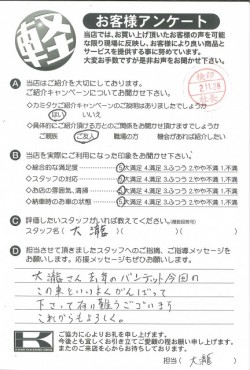 軽
お客様アンケート
当店では、お買い上げ頂いたお客様の声を可能
な限り現場に反映し、お客様により良い商品と
サービスを提供する事に努めています。
大変お手数ですが是非お声をお聞かせ下さい。
A 当店はご紹介を大切にしております。
ご紹介キャンペーンについてお聞かせ下さい
◇カミタケご紹介キャンペーンのご説明はありましたでしょうか
はい いいえ
◇具体的にご紹介頂ける方との関係をお聞かせ頂けますでしょうか
ご親族 ご友人 職場の方 機会があれば紹介したい
B 当店を実際にご利用になった印象をお聞かせ下さい。
◇総合的な満足度 5.大満足 4.満足 3.ふつう 2.やや不満 1.不満
◇スタッフの対応 5.大満足 4.満足 3.ふつう 2.やや不満 1.不満
◇お店の雰囲気、清掃 5.大満足 4.満足 3.ふつう 2.やや不満 1.不満
◇納車時のお車の状態 5.大満足 4.満足 3.ふつう 2.やや不満 1.不満
C 評価したいスタッフがいれば教えてください。
スタッフ名( 大瀧 )
D 担当させて頂きましたスタッフへのご指摘、ご指導メッセージを
お願いします。応援メッセージもぜひお願いします。
大瀧さん去年のバンデット今回の
この車といいよくがんばって
下さって有り難うございます
これからもよろしく。
ご協力に心よりお礼を申し上げます。
今後とも宜しくお引き立てご愛顧の程お願い申し上げます。
またのご来店を心からお待ちしております。
担当( 大瀧 )